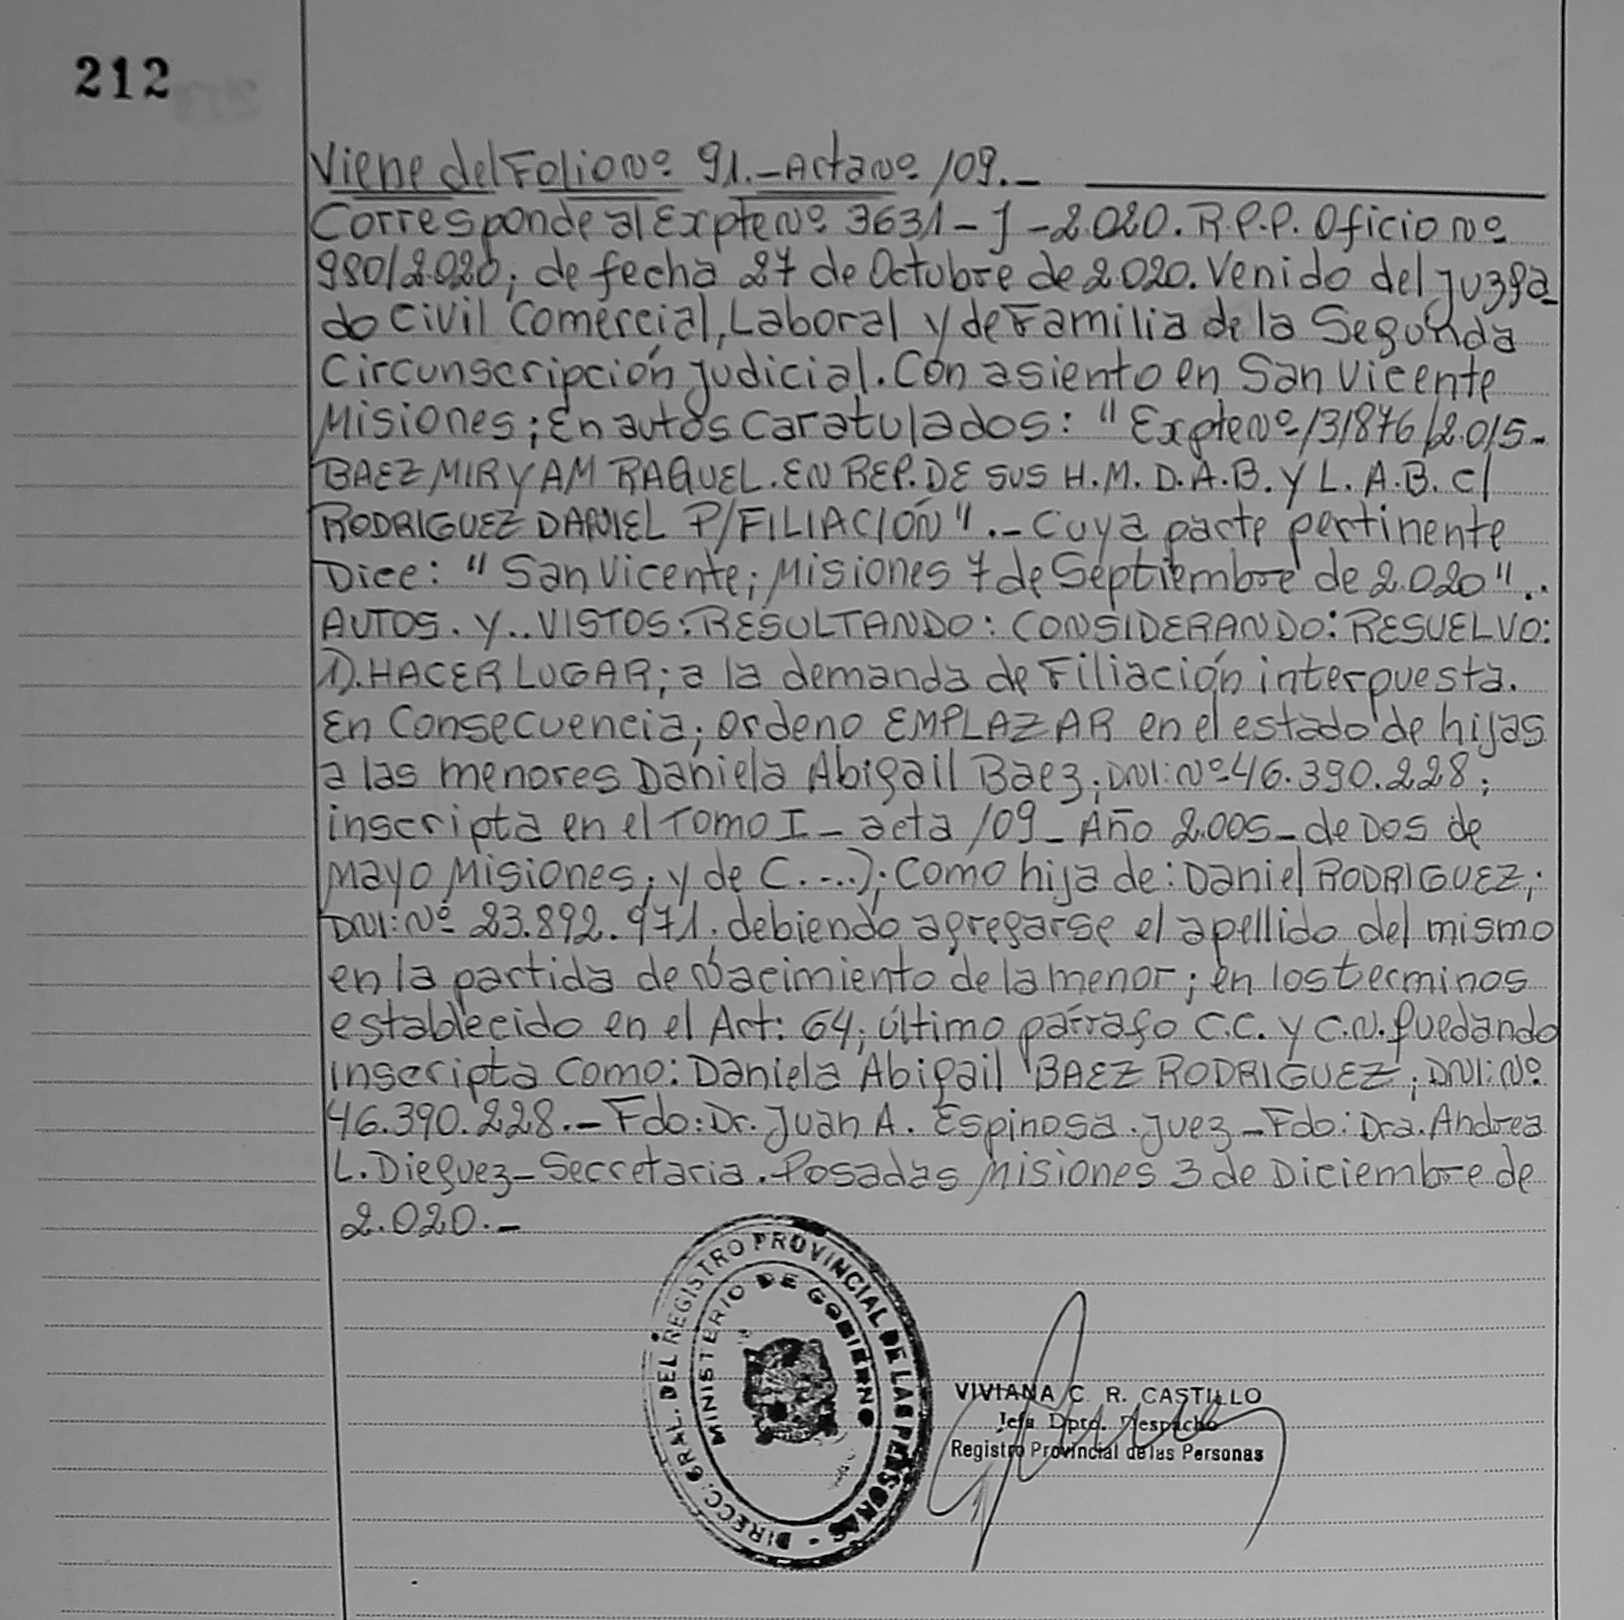 212
Viene del Folio Nº 91.- Acta Nº 109.-
Corresponde al Expte Nº 3631-J-2.020. R.P.P. Oficio Nº
980/2.020; de fecha 27 de Octubre de 2.020. Venido del Juzga
do Civil Comercial, Laboral y de Familia de la Segunda
Circunscripción Judicial. Con asiento en San Vicente
Misiones; En autos Caratulados: "Expte Nº 131876/2.015-
BAEZ MIRYAM RAQUEL. EN REP. DE SUS H.M. D.A.B. Y L.A.B. C/
RODRIGUEZ DANIEL P/FILIACIÓN".- Cuya parte pertinente
Dice: "San Vicente; Misiones 7 de Septiembre de 2.020"..
AUTOS. Y.. VISTOS: RESULTANDO: CONSIDERANDO: RESUELVO:
1). HACER LUGAR; a la demanda de Filiación interpuesta.
En Consecuencia; ordeno EMPLAZAR en el estado de hijas
a las menores Daniela Abigail Baez; DNI: Nº 46.390.228;
inscripta en el Tomo I - acta 109 - Año 2.005 - de Dos de
Mayo Misiones; y de (....); Como hija de: Daniel RODRIGUEZ;
DNI: Nº 23.892.971. debiendo agregarse el apellido del mismo
en la partida de Nacimiento de la menor; en los terminos
establecido en el Art: 64; último párrafo C.C. y C.N. quedando
Inscripta Como: Daniela Abigail BAEZ RODRIGUEZ; DNI: Nº
46.390.228.- Fdo: Dr. Juan A. Espinosa. Juez - Fdo: Dra. Andrea
L. Dieguez - Secretaria. Posadas Misiones 3 de Diciembre de
2.020.-
DIRECC. GRAL. DEL REGISTRO PROVINCIAL DE LAS PERSONAS -
MINISTERIO DE GOBIERNO
VIVIANA C. R. CASTILLO
Jefa Dpto. Despacho
Registro Provincial de las Personas